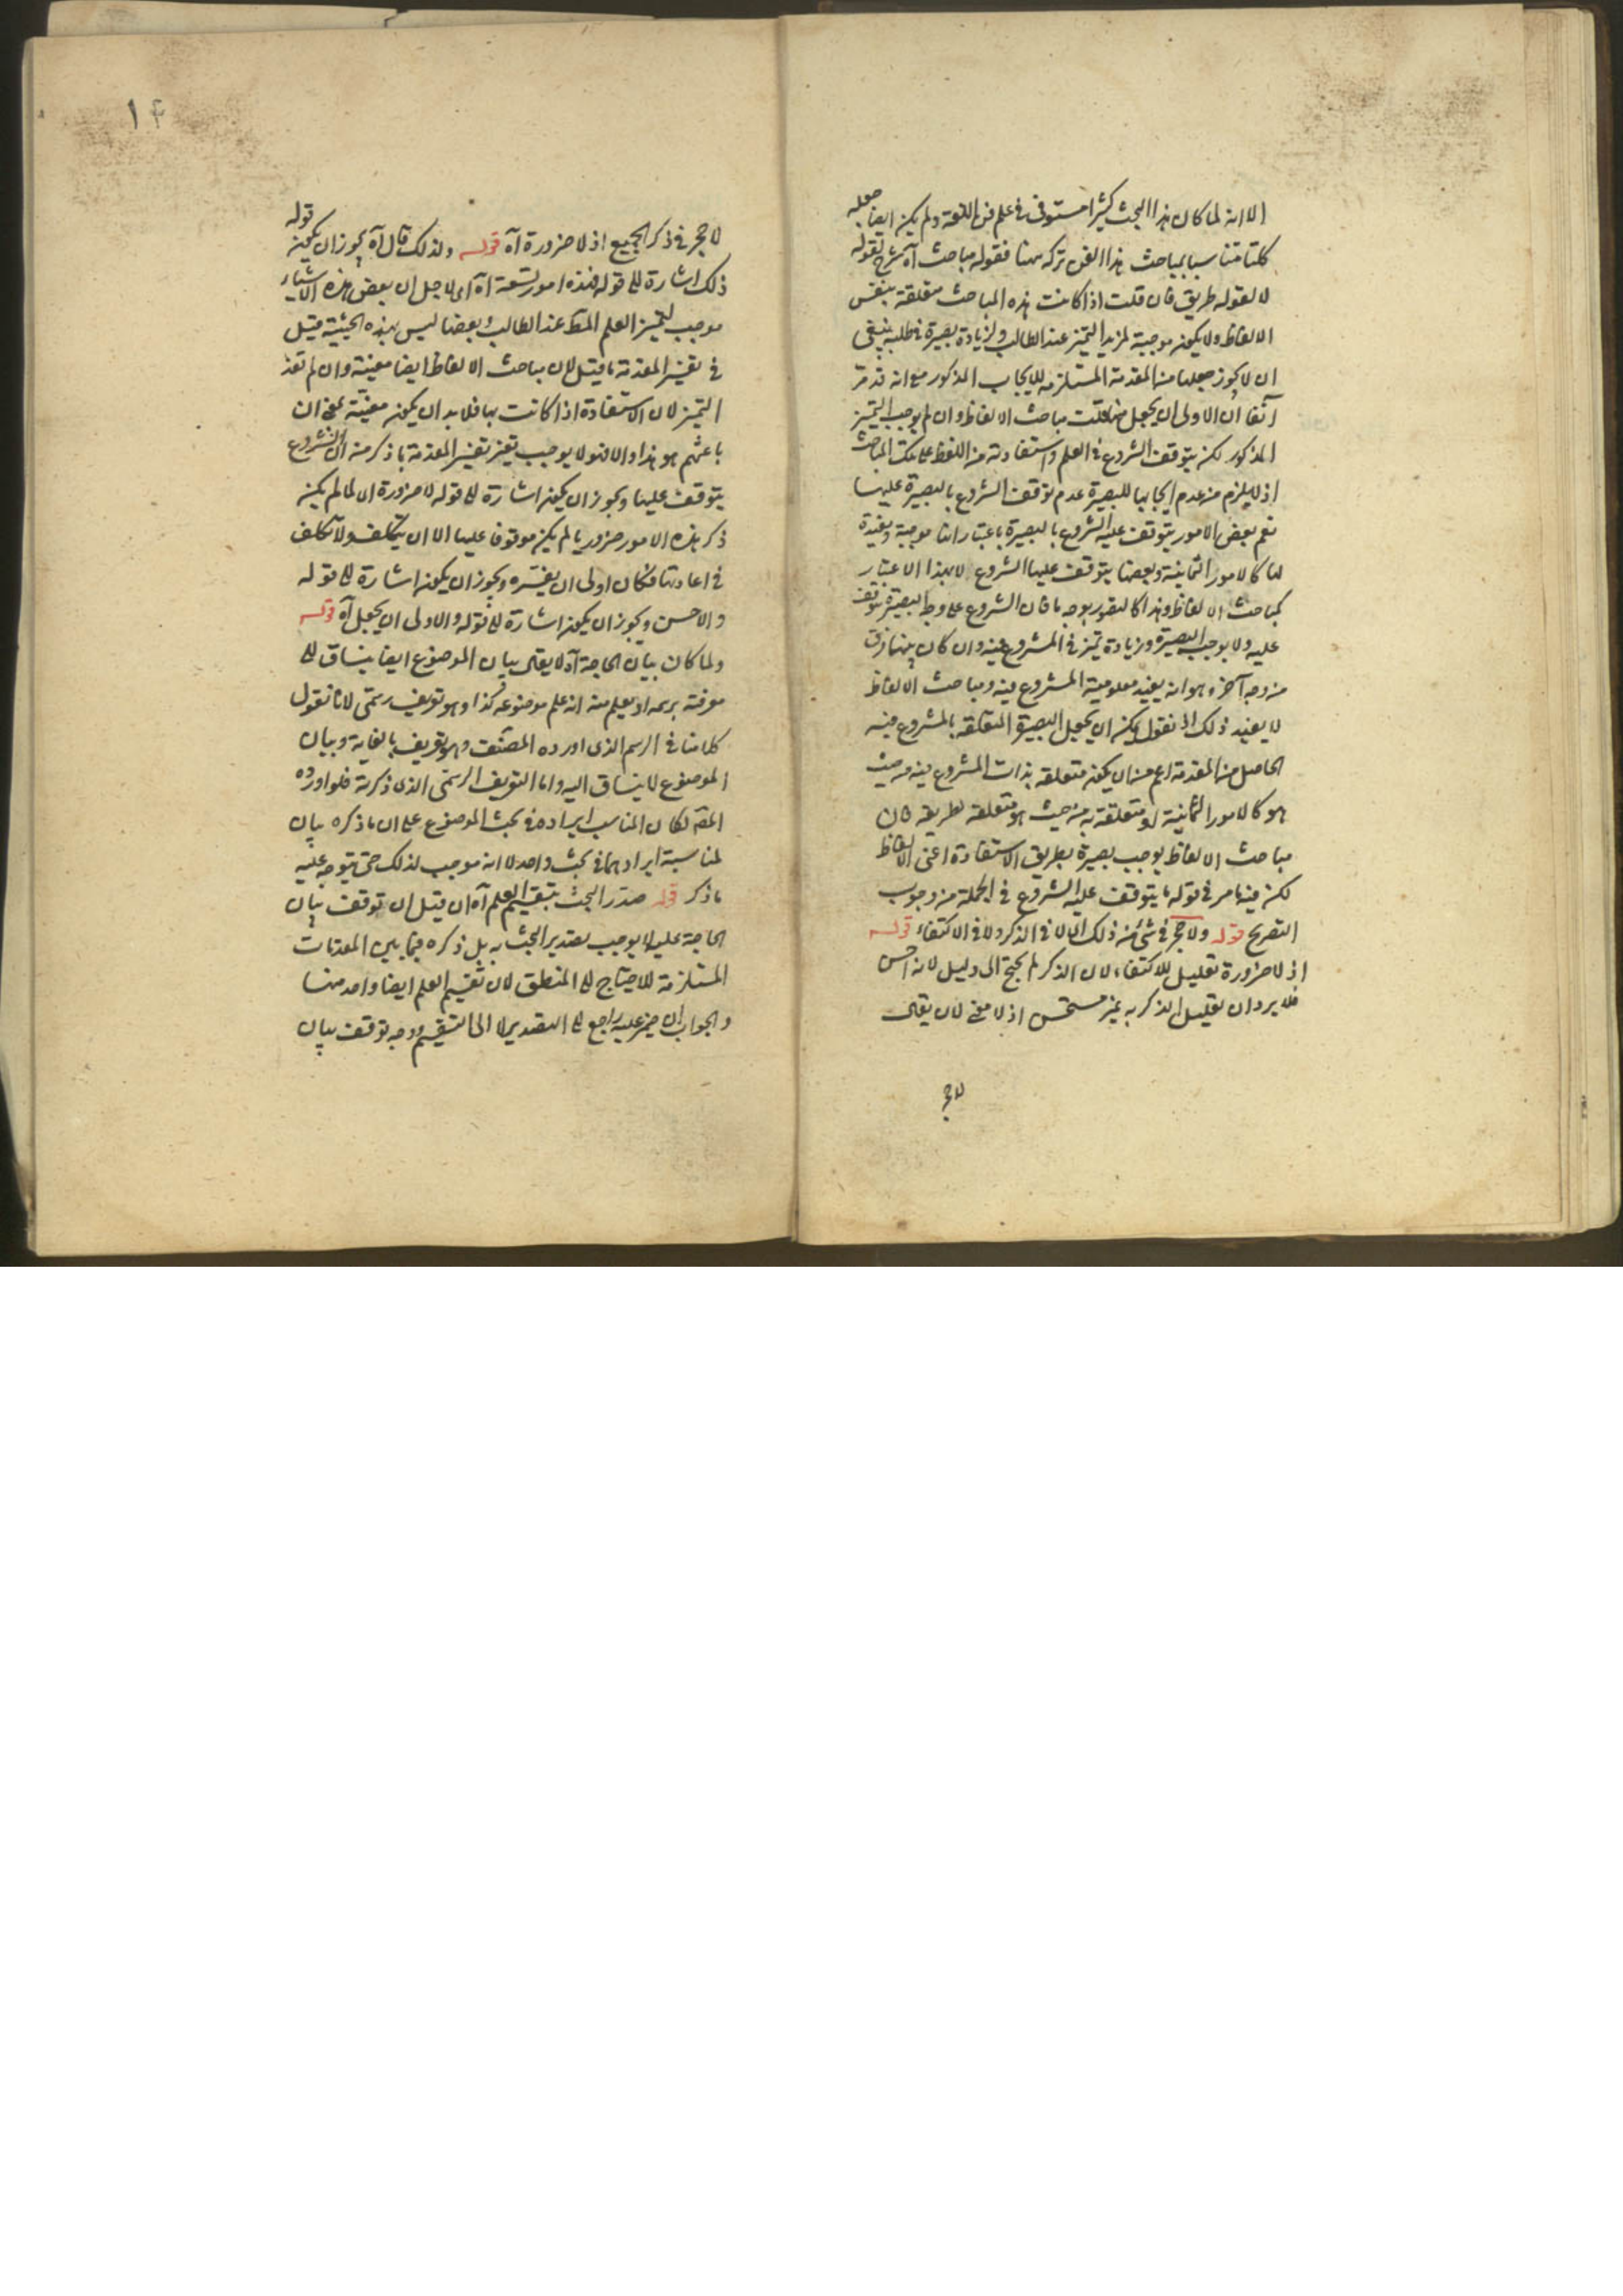 الا انه لما كان هذا البحث كثيرا مستوفى فى علم فن اللغة ولم يكن ايضا جعله
متناسبا لمباحث هذا الفن تركه ههنا فقوله مباحث آه شرح لقوله
لا لقوله طريق فان قلت اذا كانت هذه المباحث متعلقة بنفس
الالفاظ ولا يكون موجبة لمزيد التميز عند الطالب ولزيادة بصيرة فى طلبه ينبغى
ان لا يجوز جعلها من المقدمة المستلزمة للايجاب المذكور مع انه قد مر
آنفا ان الاولى ان يجعل منها قلت مباحث الالفاظ وان لم يوجب التميز
المذكور لكن يتوقف الشروع فى العلم واستفادته من اللفظ على تلك المباحث
اذ لا يلزم من عدم ايجابها للبصيرة عدم توقف الشروع بالبصيرة عليها
نعم بعض الامور يتوقف عليه الشروع بالبصيرة باعتبار انها موجبة ومفيدة
لها كالامور الثمانية وبعضها يتوقف عليها الشروع لا بهذا الاعتبار
كمباحث الالفاظ وهذا كالتصور بوجه ما فان الشروع على وجه البصيرة يتوقف
عليه ولا يوجب البصيرة وزيادة تميز فى المشروع فيه وان كان بينهما فرق
من وجه آخر وهو انه يفيد معلومية المشروع فيه ومباحث الالفاظ
لا يفيد ذلك او نقول يمكن ان يجعل البصيرة المتعلقة بالمشروع فيه
الحاصل من المقدمة اعم من ان يكون متعلقة بذات المشروع فيه من حيث
هو كالامور الثمانية او متعلقة به من حيث هو متعلقة بطريقه فان
مباحث الالفاظ يوجب بصيرة بطريق الاستفادة اعنى الالفاظ
لكن فيه ما مر فى قوله ما يتوقف عليه الشروع فى الجملة من وجوب
التصريح قوله ولا حجر فى شئ من ذلك اى لا فى الذكر ولا فى الاكتفاء قوله
اذ لا ضرورة تعليل للاكتفاء لان الذكر لم يحتج الى دليل لانه احسن
فلا يرد ان تعليل الذكر به غير مستحسن اذ لا معنى لان يقال
لا حجر
١٤
لا حجر فى ذكر الجميع اذ لا ضرورة آه قوله ولذلك قال آه يجوز ان يكون قوله
ذلك اشارة الى قوله فهذه امور تسعة آه اى لاجل ان بعض هذه الاشياء
موجب لتميز العلم المط عند الطالب وبعضها ليس بهذه الحيثية قيل
فى تفسير المقدمة ما قيل لان مباحث الالفاظ ايضا معينة وان لم تفد
التميز لان الاستفادة اذا كانت بها فلا بد ان يكون معينة بمعنى ان
باعثهم هو هذا والا فهو لا يوجب تعين تفسير المقدمة بما ذكر منه ان الشروع
يتوقف عليها ويجوز ان يكون اشارة الى قوله لا ضرورة اى لما لم يكن
ذكر هذه الامور ضروريا لم يكن موقوفا عليها الا ان يتكلف ولا تكلف
فى اعادتها فكان اولى ان يفسره ويجوز ان يكون اشارة الى قوله
والاحسن ويجوز ان يكون اشارة الى قوله والاولى ان يجعل آه قوله
ولما كان بيان الحاجة آه لا يقال بيان الموضوع ايضا ينساق الى
معرفته برسمه اذ يعلم منه انه علم موضوعه كذا وهو تعريف رسمى لانا نقول
كلامنا فى الرسم الذى اورده المصنف وهو تعريف بالغاية وبيان
الموضوع لا ينساق اليه واما التعريف الرسمى الذى ذكرته فلو اورده
المص لكان المناسب ايراده فى بحث الموضوع على ان ما ذكره بيان
لمناسبة ايرادهما فى بحث واحد لا انه موجب لذلك حتى يتوجه عليه
ما ذكر قوله صدر البحث بتقسيم العلم آه ان قيل ان توقف بيان
الحاجة عليه لا يوجب تصدير البحث به بل ذكره فيما بين المقدمات
المستلزمة للاحتياج الى المنطق لان تقسيم العلم ايضا واحد منها
والجواب ان ضمير عليه راجع الى التصدير لا الى التقسيم ووجه توقف بيان